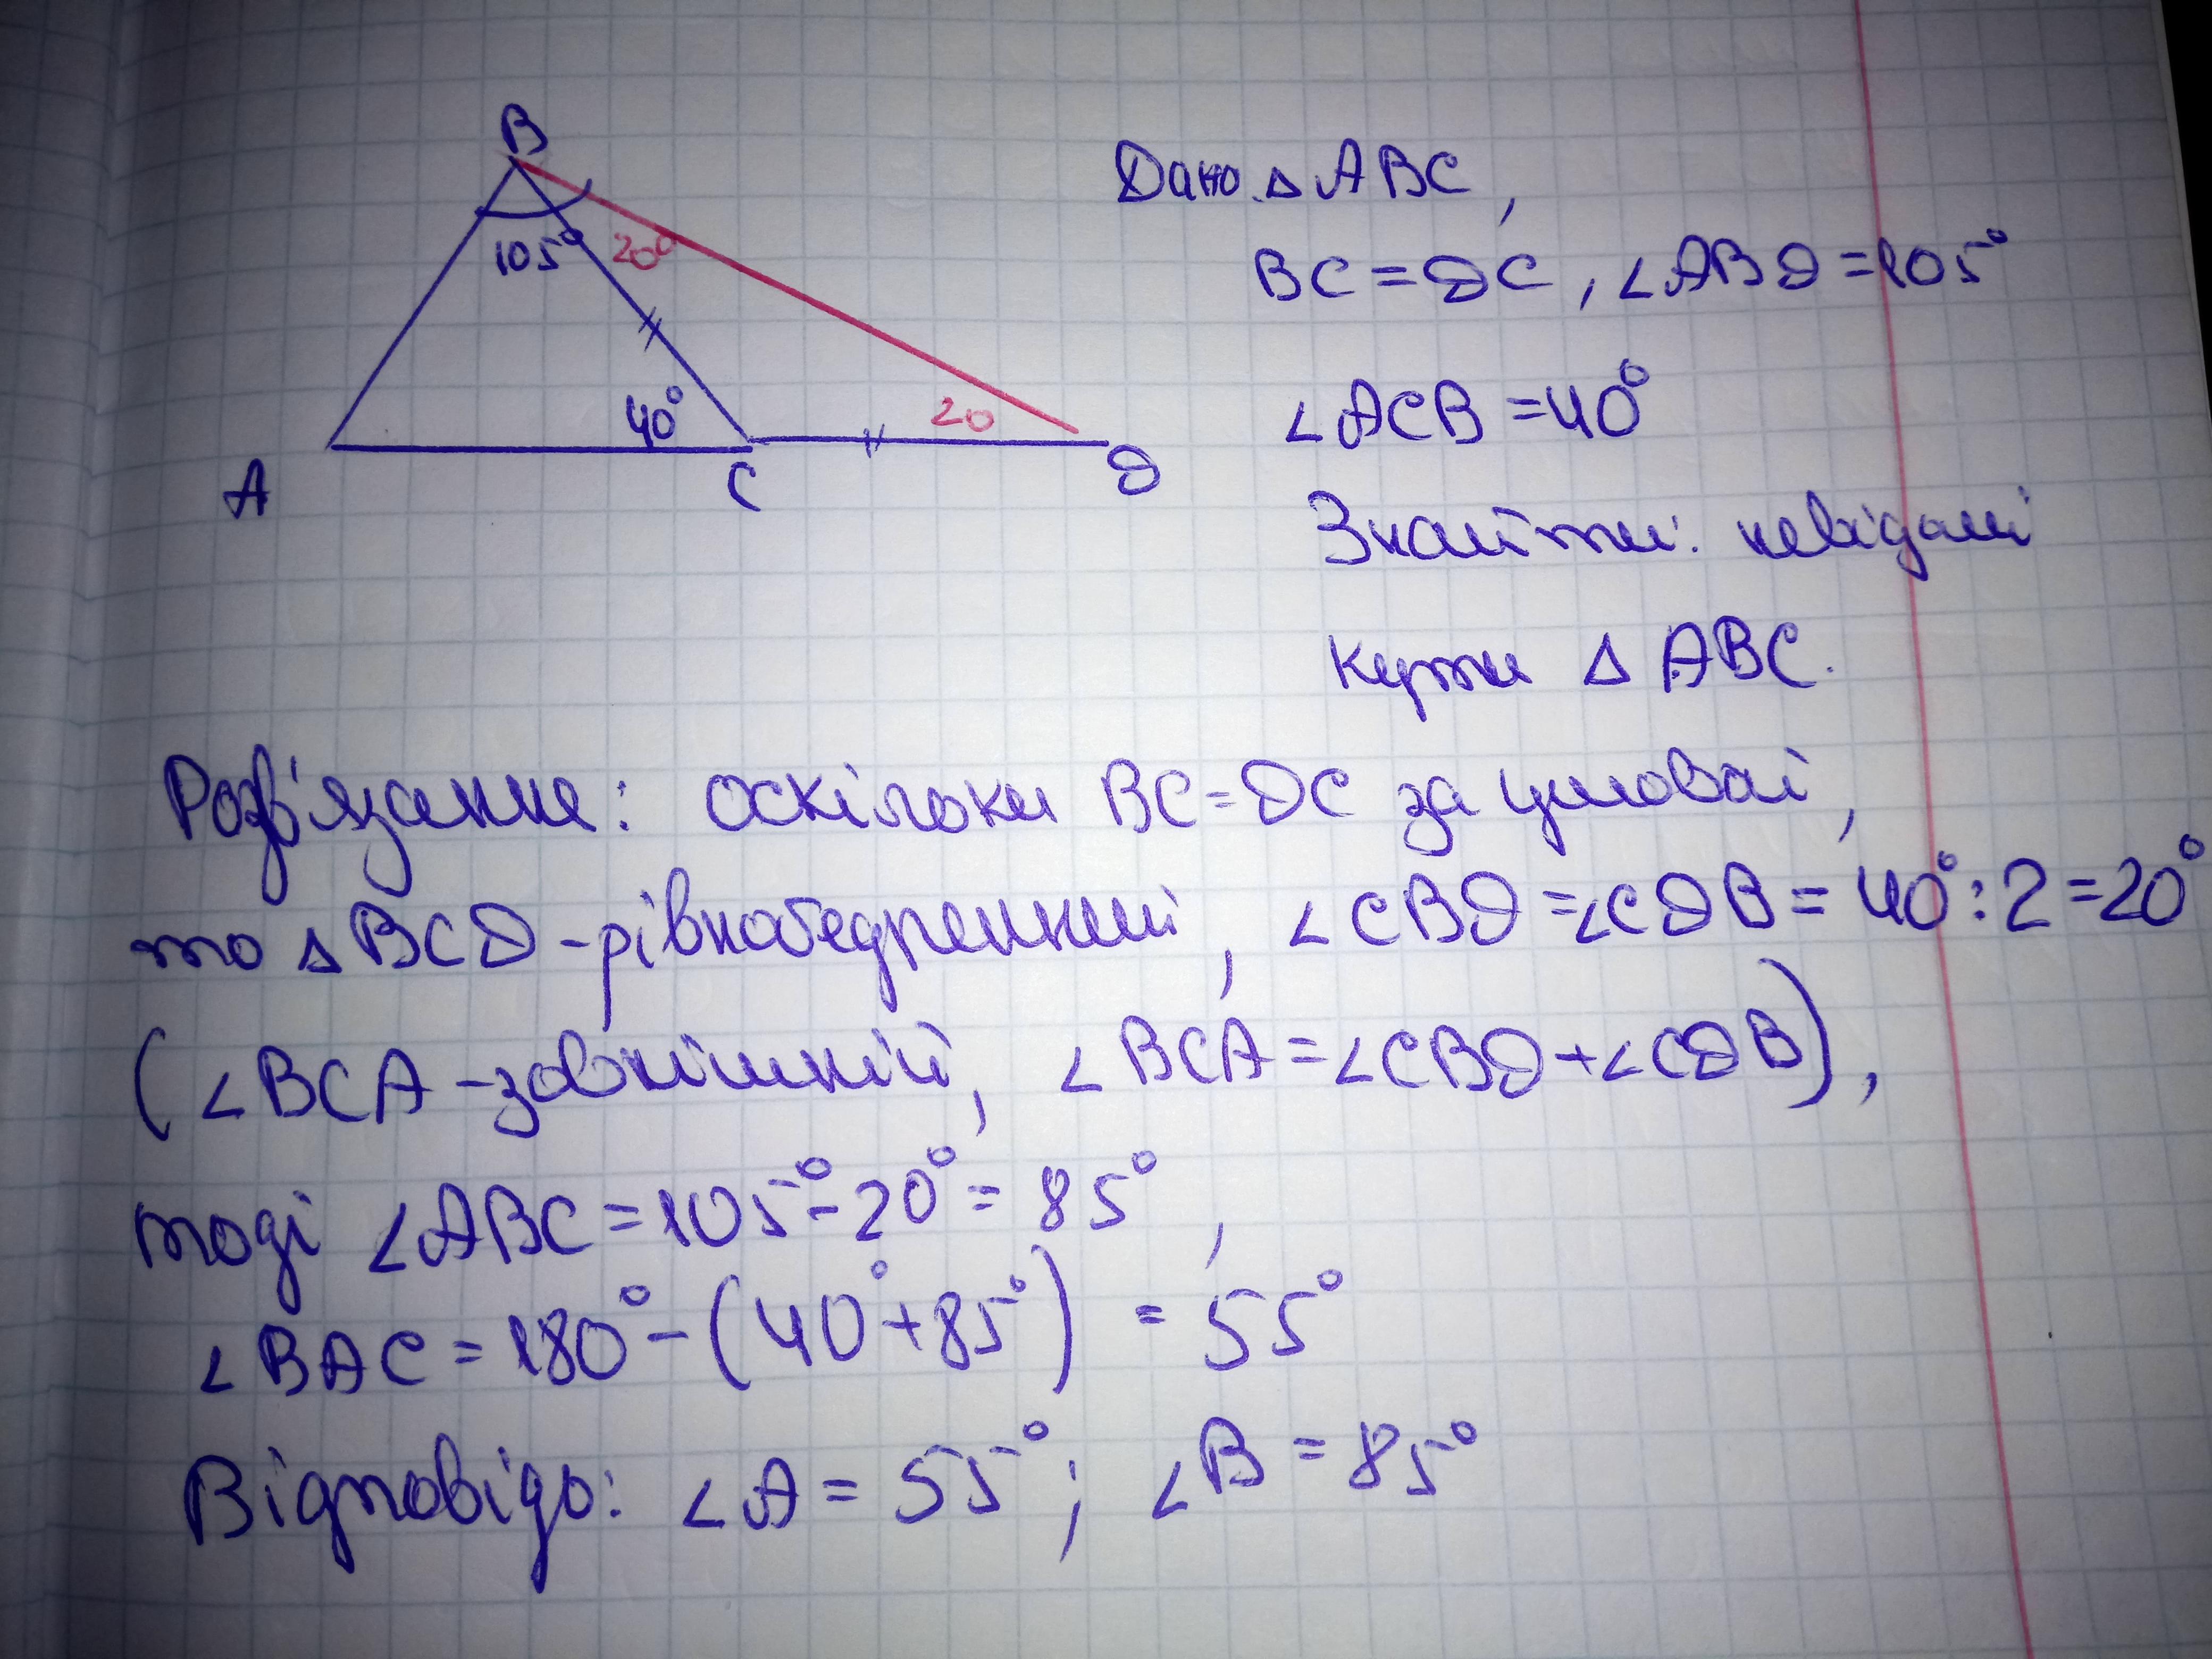 B
105° 20°
40° 20
A C D
Дано. △ ABC,
BC = DC, ∠ABD = 105°
∠ACB = 40°
Знайти: невідомі
кути △ ABC.
Розв'язання: оскільки BC = DC за умовою,
то △ BCD - рівнобедренний, ∠CBD = ∠CDB = 40° : 2 = 20°
(∠BCA - зовнішній, ∠BCA = ∠CBD + ∠CDB),
тоді ∠ABC = 105° - 20° = 85°,
∠BAC = 180° - (40° + 85°) = 55°
Відповідь: ∠A = 55°; ∠B = 85°